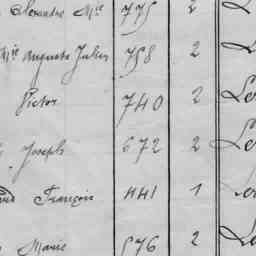 Alexandre Mie 775 2
Mie Auguste Julien 758 2
Victor 740 2
Joseph 672 2
François 441 1
Marie 576 2